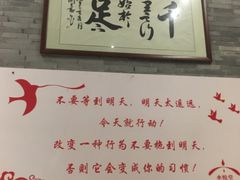 千里之行
始於
足下
不要等到明天，明天太遥远，
今天就行动！
改变一种行为要拖到明天，
否则它会变成你的习惯！